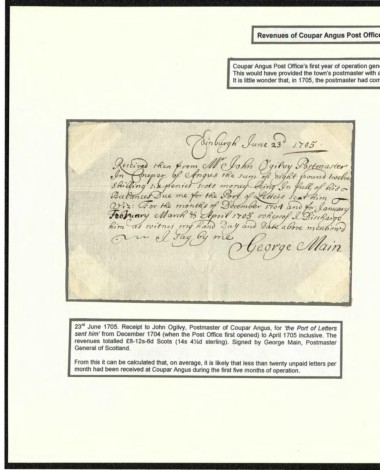 Revenues of Coupar Angus Post Office
Coupar Angus Post Office's first year of operation gene
This would have provided the town's postmaster with a
It is little wonder that, in 1705, the postmaster had com
Edinburgh June 23d 1705
Received then from Mr John Ogilvy Postmaster
In Couper of Angus the sum of eight pound twelve
shilling six penies scots money being In full of his
Ballances Due me for the Port of Letters sent him
Viz: For the months of December 1704 and for January
February March & April 1705 whereof I Discharge
him as witnes my hand Day and Date above mentioned
I say by me
George Main
23rd June 1705. Receipt to John Ogilvy, Postmaster of Coupar Angus, for 'the Port of Letters
sent him' from December 1704 (when the Post Office first opened) to April 1705 inclusive. The
revenues totalled £8-12s-6d Scots (14s 4½d sterling). Signed by George Main, Postmaster
General of Scotland.
From this it can be calculated that, on average, it is likely that less than twenty unpaid letters per
month had been received at Coupar Angus during the first five months of operation.